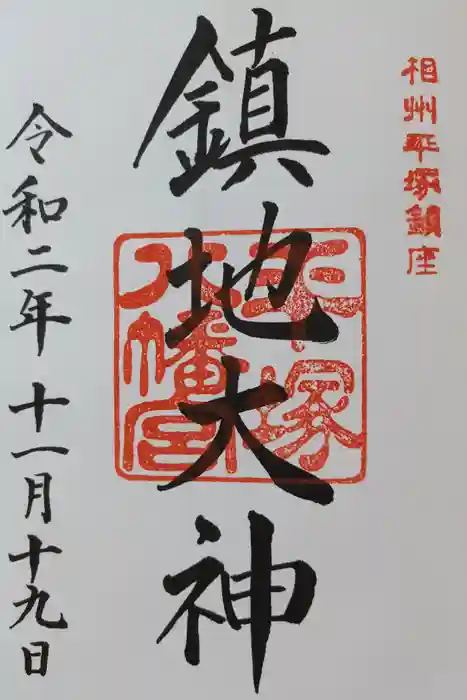 相州平塚鎮座
鎮地大神
平塚
八幡宮
令和二年十一月十九日